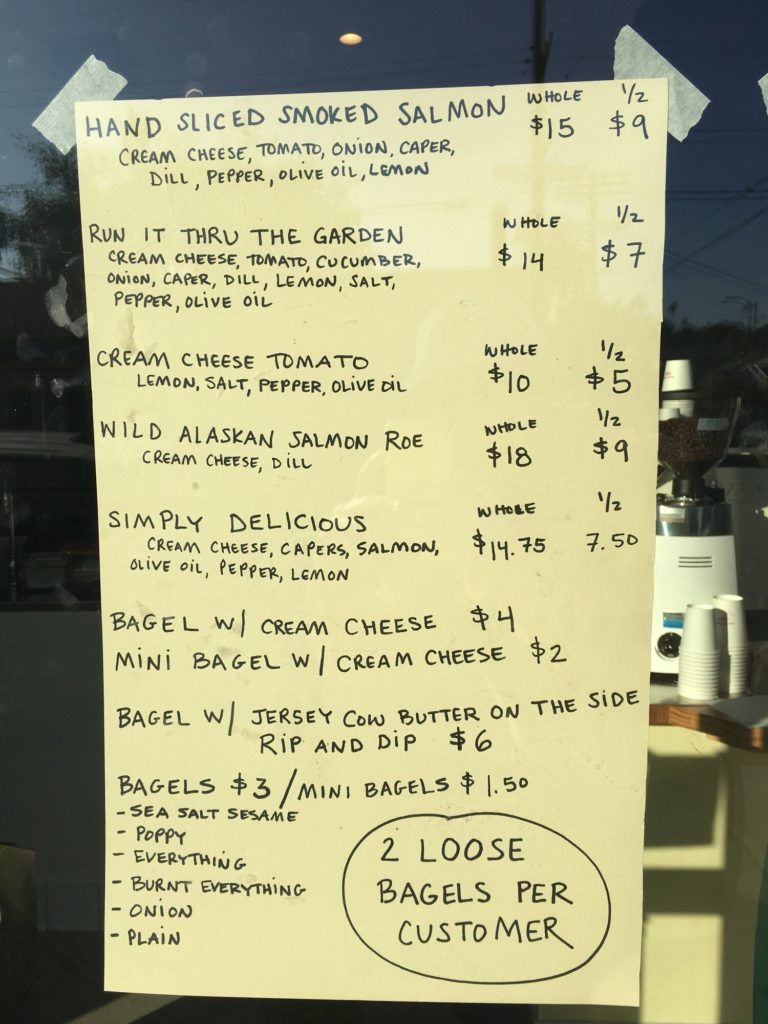 HAND SLICED SMOKED SALMON WHOLE 1/2
$15 $9
CREAM CHEESE, TOMATO, ONION, CAPER,
DILL, PEPPER, OLIVE OIL, LEMON
RUN IT THRU THE GARDEN WHOLE 1/2
$14 $7
CREAM CHEESE, TOMATO, CUCUMBER,
ONION, CAPER, DILL, LEMON, SALT,
PEPPER, OLIVE OIL
CREAM CHEESE TOMATO WHOLE 1/2
LEMON, SALT, PEPPER, OLIVE OIL $10 $5
WILD ALASKAN SALMON ROE WHOLE 1/2
CREAM CHEESE, DILL $18 $9
SIMPLY DELICIOUS WHOLE 1/2
CREAM CHEESE, CAPERS, SALMON, $14.75 7.50
OLIVE OIL, PEPPER, LEMON
BAGEL W/ CREAM CHEESE $4
MINI BAGEL W/ CREAM CHEESE $2
BAGEL W/ JERSEY COW BUTTER ON THE SIDE
RIP AND DIP $6
BAGELS $3 / MINI BAGELS $1.50
- SEA SALT SESAME
- POPPY
- EVERYTHING
- BURNT EVERYTHING
- ONION
- PLAIN
2 LOOSE
BAGELS PER
CUSTOMER